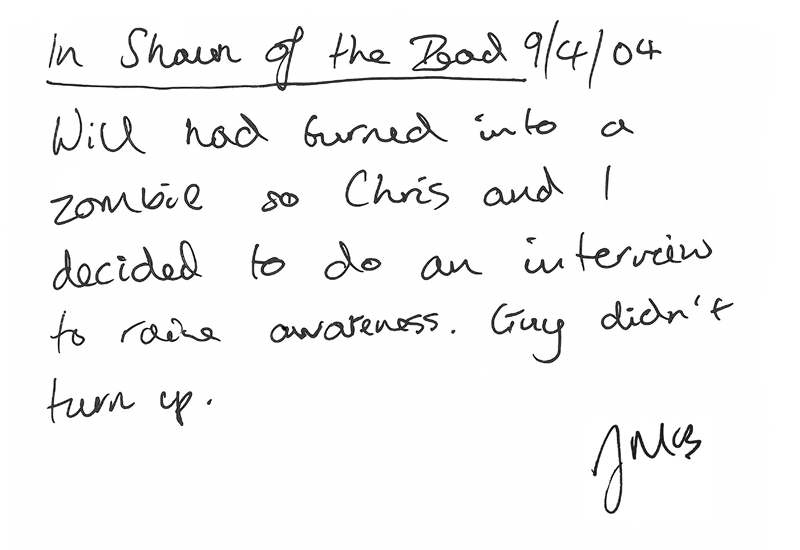 In Shaun of the Dead 9/4/04
Will had turned into a
zombie so Chris and I
decided to do an interview
to raise awareness. Guy didn't
turn up.
JMCB